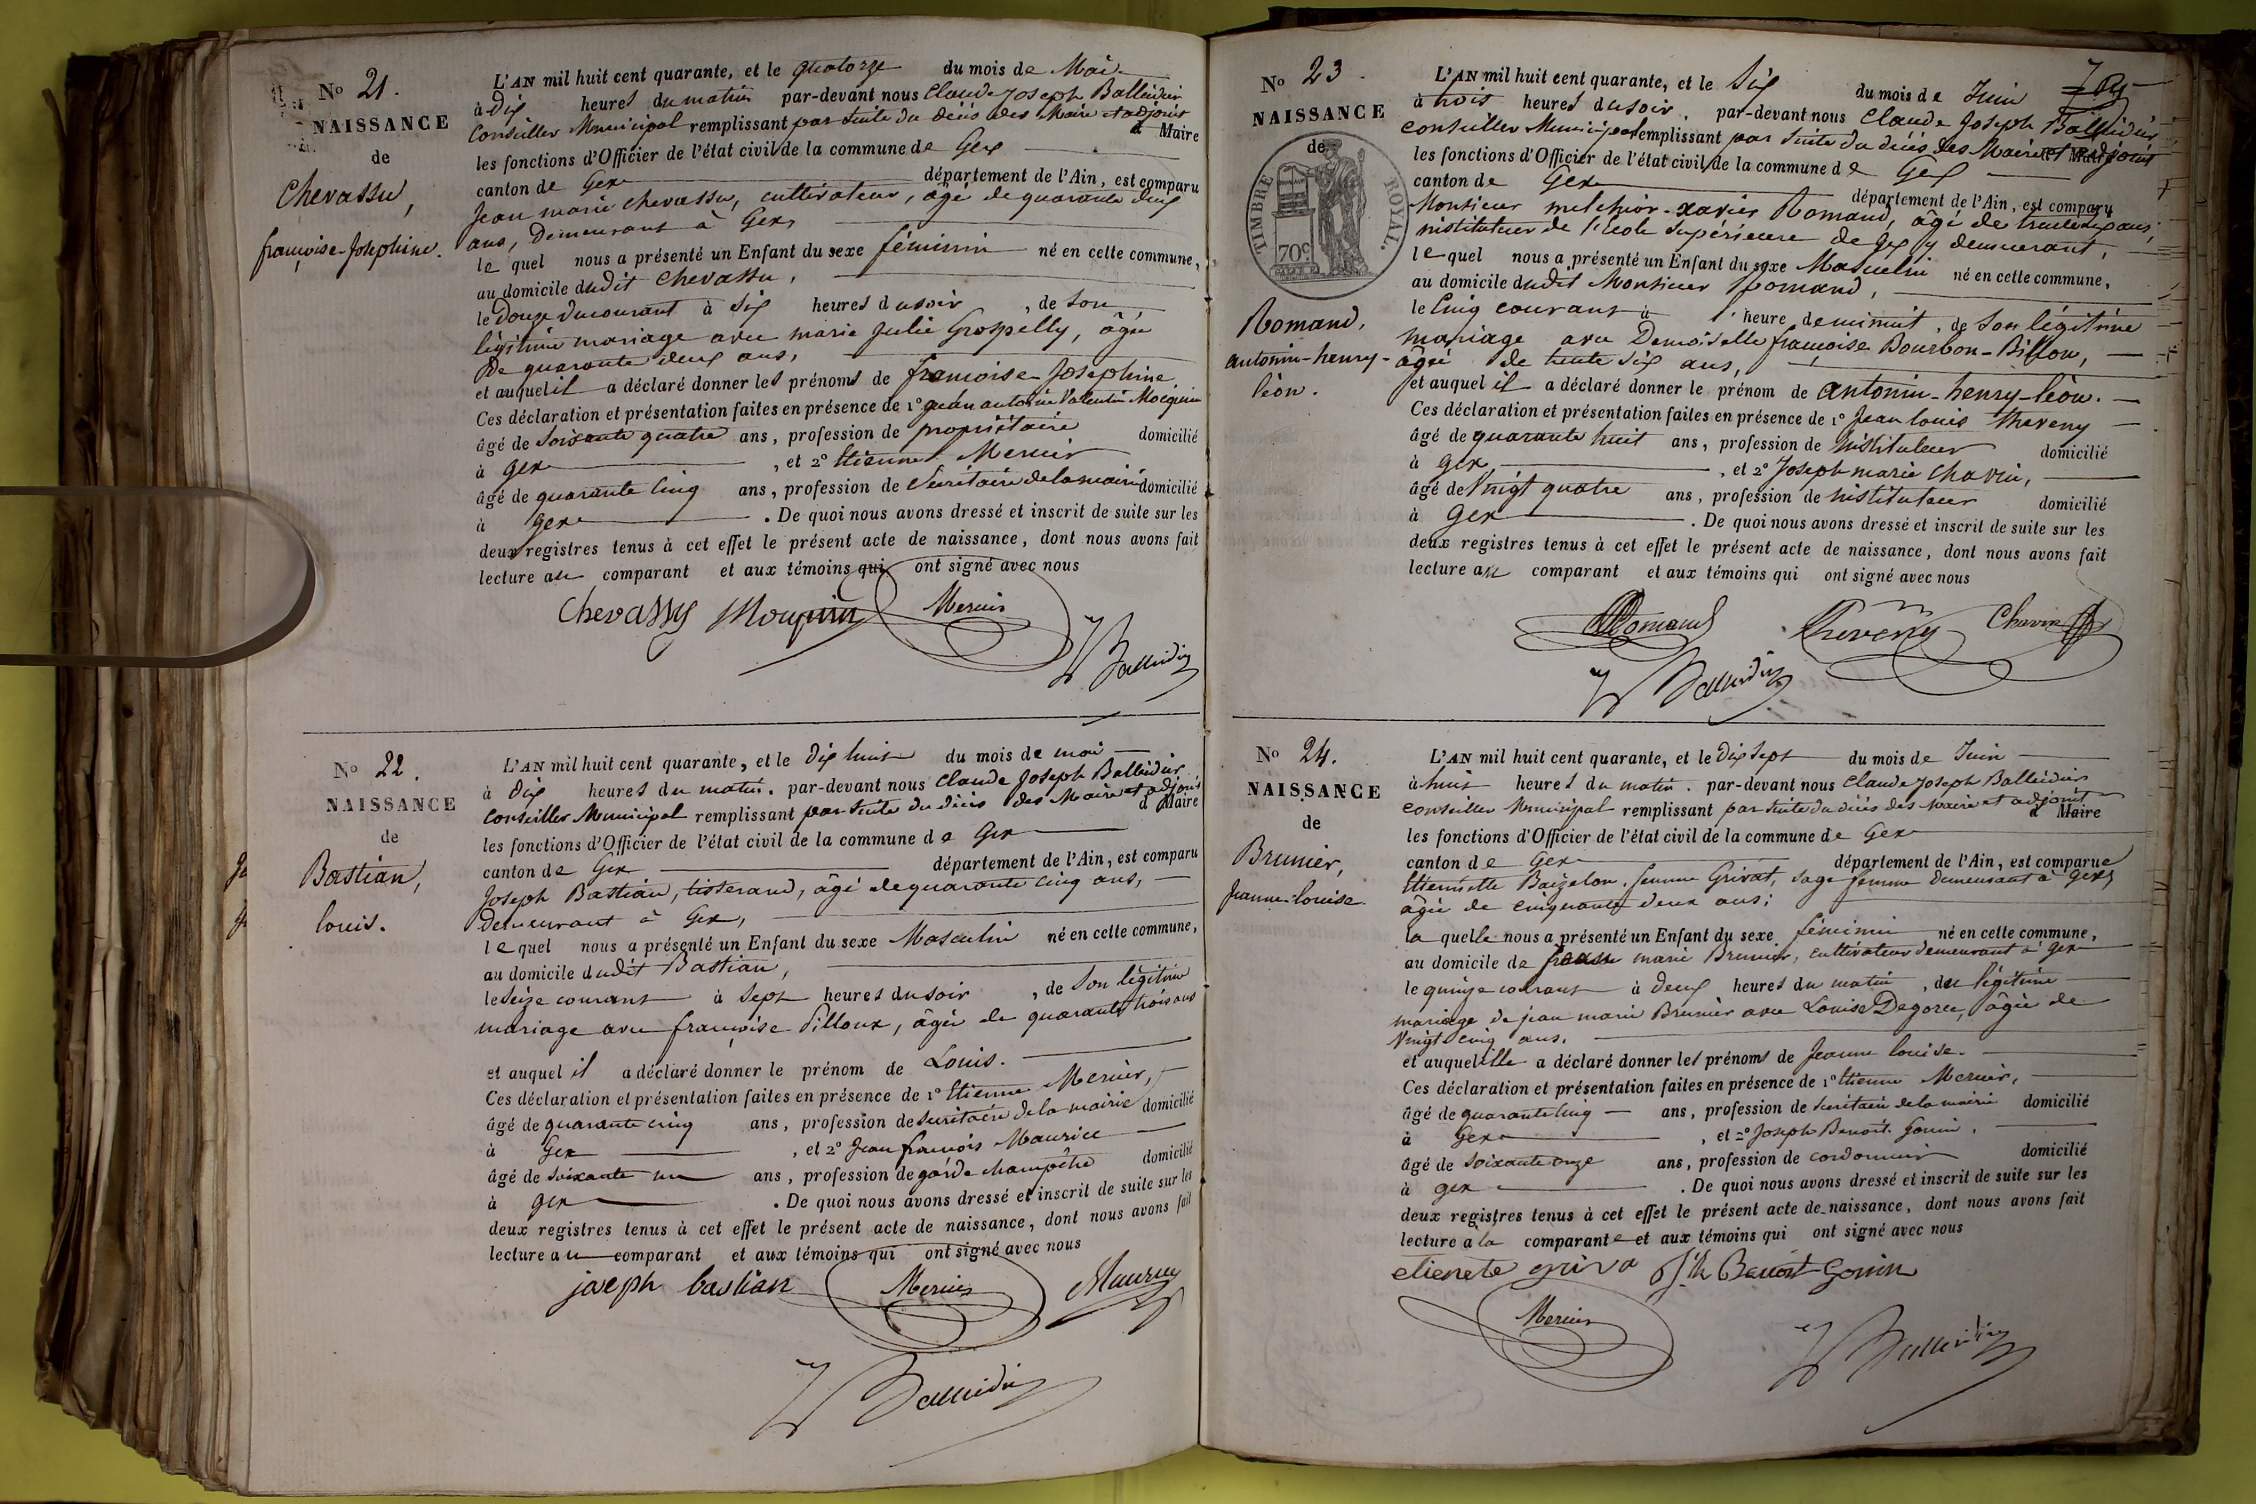 No 21.
NAISSANCE
de
Chevassu,
françoise-Josephine.
L'AN mil huit cent quarante, et le quatorze du mois de Mai
à dix heures du matin par-devant nous Claude Joseph Balleidier
Conseiller Municipal remplissant par suite du décès des Maire et adjoint
d Maire
les fonctions d'Officier de l'état civil de la commune de Gex
canton de Gex département de l'Ain, est comparu
Jean marie chevassu, cultivateur, âgé de quarante deux
ans, demeurant à Gex,
le quel nous a présenté un Enfant du sexe féminin né en cette commune,
au domicile dudit chevassu,
le Douze du courant à six heures du soir, de son
légitime mariage avec marie julie Grospelly, âgée
de quarante deux ans,
et auquel il a déclaré donner les prénoms de françoise-Josephine.
Ces déclaration et présentation faites en présence de 1° jean antoine Valentin
âgé de soixante quatre ans, profession de propriétaire domicilié
à gex, et 2° Etienne Mercier
âgé de quarante cinq ans, profession de Secrétaire de la mairie domicilié
à gex. De quoi nous avons dressé et inscrit de suite sur les
deux registres tenus à cet effet le présent acte de naissance, dont nous avons fait
lecture au comparant et aux témoins qui ont signé avec nous
Chevassu Mercier
Balleidier
No 22.
NAISSANCE
de
Bastian,
louis.
L'AN mil huit cent quarante, et le dix huit du mois de mai
à dix heures du matin. par-devant nous Claude Joseph Balleidier
Conseiller Municipal remplissant par suite du décès des Maire et adjoint
d Maire
les fonctions d'Officier de l'état civil de la commune de Gex
canton de Gex département de l'Ain, est comparu
Joseph Bastian, tisserand, âgé de quarante cinq ans,
demeurant à Gex,
le quel nous a présenté un Enfant du sexe Masculin né en cette commune,
au domicile dudit Bastian,
le seize courant à sept heures du soir, de son légitime
mariage avec françoise Pilloux, âgée de quarante trois ans
et auquel il a déclaré donner le prénom de Louis.
Ces déclaration et présentation faites en présence de 1° Etienne Mercier,
âgé de quarante cinq ans, profession de Secrétaire de la mairie domicilié
à Gex, et 2° Jean françois Maurice
âgé de soixante un ans, profession de garde champêtre domicilié
à gex. De quoi nous avons dressé et inscrit de suite sur les
deux registres tenus à cet effet le présent acte de naissance, dont nous avons fait
lecture au comparant et aux témoins qui ont signé avec nous
joseph bastian Mercier Maurice
Balleidier
No 23.
NAISSANCE
de
TIMBRE ROYAL.
70c
Romand,
antonin-henry-
léon.
L'AN mil huit cent quarante, et le six du mois de Juin
à trois heures du soir. par-devant nous Claude Joseph Balleidier
conseiller Municipal remplissant par suite du décès des Maire et adjoint
les fonctions d'Officier de l'état civil de la commune de Gex
canton de Gex département de l'Ain, est comparu
Monsieur melchior-xavier Romand, âgé de trente six ans,
instituteur de l'école supérieure de gex y demeurant,
le quel nous a présenté un Enfant du sexe Masculin né en cette commune,
au domicile dudit Monsieur Romand,
le Cinq courant à l'heure de minuit, de son légitime
mariage avec Demoiselle françoise Bourbon-Billon,
âgée de trente six ans,
et auquel il a déclaré donner le prénom de antonin-henry-léon.
Ces déclaration et présentation faites en présence de 1° Jean louis theveny
âgé de quarante huit ans, profession de instituteur domicilié
à gex, et 2° Joseph marie chavin,
âgé de vingt quatre ans, profession de instituteur domicilié
à gex. De quoi nous avons dressé et inscrit de suite sur les
deux registres tenus à cet effet le présent acte de naissance, dont nous avons fait
lecture au comparant et aux témoins qui ont signé avec nous
Romand Theveny Chavin
Balleidier
No 24.
NAISSANCE
de
Brunier,
jeanne-louise.
L'AN mil huit cent quarante, et le dix sept du mois de Juin
à huit heures du matin. par-devant nous Claude Joseph Balleidier
conseiller Municipal remplissant par suite du décès des Maire et adjoint
d Maire
les fonctions d'Officier de l'état civil de la commune de Gex
canton de Gex département de l'Ain, est comparue
Etiennette femme Grivat, sage femme demeurant à gex,
âgée de cinquante deux ans;
la quelle nous a présenté un Enfant du sexe féminin né en cette commune,
au domicile de jean marie Brunier, cultivateur demeurant à gex
le quinze courant à deux heures du matin, du légitime
mariage de jean marie Brunier avec Louise Degorce, âgée de
vingt cinq ans.
et auquel elle a déclaré donner les prénoms de jeanne louise.
Ces déclaration et présentation faites en présence de 1° Etienne Mercier,
âgé de quarante cinq ans, profession de Secrétaire de la mairie domicilié
à Gex, et 2° Joseph Benoit Gonin,
âgé de soixante onze ans, profession de cordonnier domicilié
à gex. De quoi nous avons dressé et inscrit de suite sur les
deux registres tenus à cet effet le présent acte de naissance, dont nous avons fait
lecture à la comparante et aux témoins qui ont signé avec nous
etienete griva Jh Benoit Gonin
Mercier Balleidier